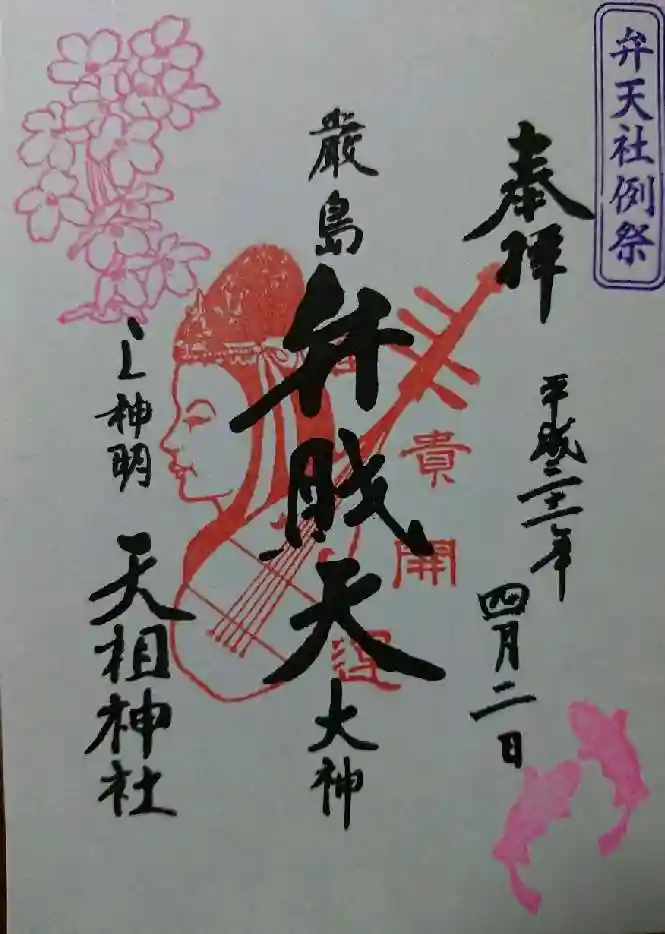 弁天社例祭
奉拝
平成三十一年
四月二日
厳島
弁財天
大神
貴
開
運
上神明
天祖神社